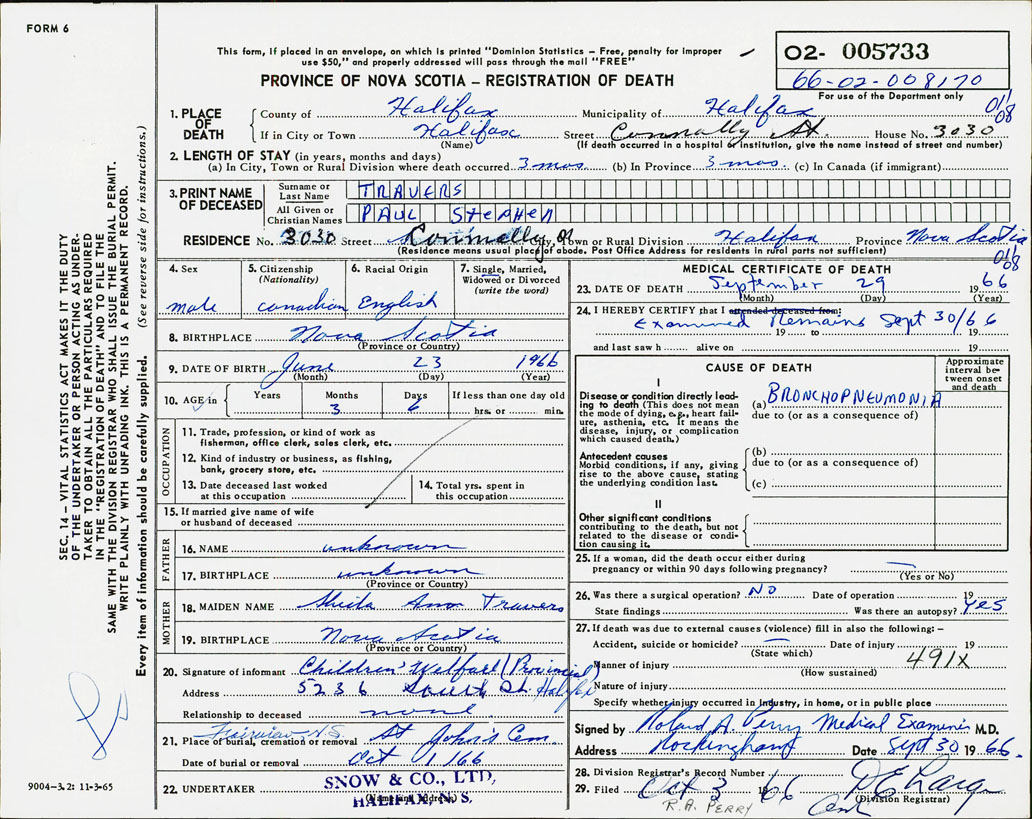 FORM 6
This form, if placed in an envelope, on which is printed "Dominion Statistics – Free, penalty for improper
use $50," and properly addressed will pass through the mail "FREE"
PROVINCE OF NOVA SCOTIA – REGISTRATION OF DEATH
O2- 005733
66-02-008170
For use of the Department only
1. PLACE OF DEATH
County of Halifax Municipality of Halifax
If in City or Town Halifax Street Connally St. House No. 3030
(Name) (If death occurred in a hospital or institution, give the name instead of street and number)
2. LENGTH OF STAY (in years, months and days)
(a) In City, Town or Rural Division where death occurred 3 mos. (b) In Province 3 mos. (c) In Canada (if immigrant)
3. PRINT NAME OF DECEASED
Surname or Last Name TRAVERS
All Given or Christian Names PAUL STEPHEN
RESIDENCE No. 3030 Street Connolly St City, Town or Rural Division Halifax Province Nova Scotia
(Residence means usual place of abode. Post Office Address for residents in rural parts not sufficient)
4. Sex male
5. Citizenship (Nationality) canadian
6. Racial Origin English
7. Single, Married, Widowed or Divorced (write the word)
8. BIRTHPLACE Nova Scotia
(Province or Country)
9. DATE OF BIRTH June 23 1966
(Month) (Day) (Year)
10. AGE in Years Months 3 Days 6 If less than one day old hrs. or min.
OCCUPATION
11. Trade, profession, or kind of work as
fisherman, office clerk, sales clerk, etc.
12. Kind of industry or business, as fishing,
bank, grocery store, etc.
13. Date deceased last worked
at this occupation
14. Total yrs. spent in
this occupation
15. If married give name of wife
or husband of deceased
FATHER
16. NAME unknown
17. BIRTHPLACE unknown
(Province or Country)
MOTHER
18. MAIDEN NAME Sheila Ann Travers
19. BIRTHPLACE Nova Scotia
(Province or Country)
20. Signature of informant Children' Welfare (Provincial)
Address 5236 South St. Halifax
Relationship to deceased none
Fairview, N.S.
21. Place of burial, cremation or removal St John's Cem.
Date of burial or removal Oct 1/66
22. UNDERTAKER SNOW & CO., LTD,
HALIFAX, N. S.
MEDICAL CERTIFICATE OF DEATH
23. DATE OF DEATH September 29 1966
(Month) (Day) (Year)
24. I HEREBY CERTIFY that I attended deceased from:
Examined Remains Sept 30/66
19 to 19
and last saw h alive on 19
CAUSE OF DEATH
Approximate interval between onset and death
I
Disease or condition directly leading to death (This does not mean
the mode of dying, e.g., heart failure, asthenia, etc. It means the
disease, injury, or complication
which caused death.)
(a) BRONCHOPNEUMONIA
due to (or as a consequence of)
Antecedent causes
Morbid conditions, if any, giving
rise to the above cause, stating
the underlying condition last.
(b)
due to (or as a consequence of)
(c)
II
Other significant conditions
contributing to the death, but not
related to the disease or condition causing it.
25. If a woman, did the death occur either during
pregnancy or within 90 days following pregnancy?
(Yes or No)
26. Was there a surgical operation? NO Date of operation 19
State findings Was there an autopsy? Yes
27. If death was due to external causes (violence) fill in also the following: –
Accident, suicide or homicide? Date of injury 19
(State which)
491X
Manner of injury
(How sustained)
Nature of injury
Specify whether injury occurred in Industry, in home, or in public place
Signed by Roland A. Perry Medical Examiner M.D.
Address Rockingham Date Sept 30 1966
28. Division Registrar's Record Number
29. Filed Oct 3 1966
(Division Registrar)
R.A. PERRY
SEC. 14 – VITAL STATISTICS ACT MAKES IT THE DUTY
OF THE UNDERTAKER OR PERSON ACTING AS UNDER-
TAKER TO OBTAIN ALL THE PARTICULARS REQUIRED
IN THE "REGISTRATION OF DEATH" AND TO FILE THE
SAME WITH THE DIVISION REGISTRAR WHO SHALL ISSUE THE BURIAL PERMIT.
WRITE PLAINLY WITH UNFADING INK. THIS IS A PERMANENT RECORD.
Every item of information should be carefully supplied. (See reverse side for instructions.)
9004-3.2: 11-3-65